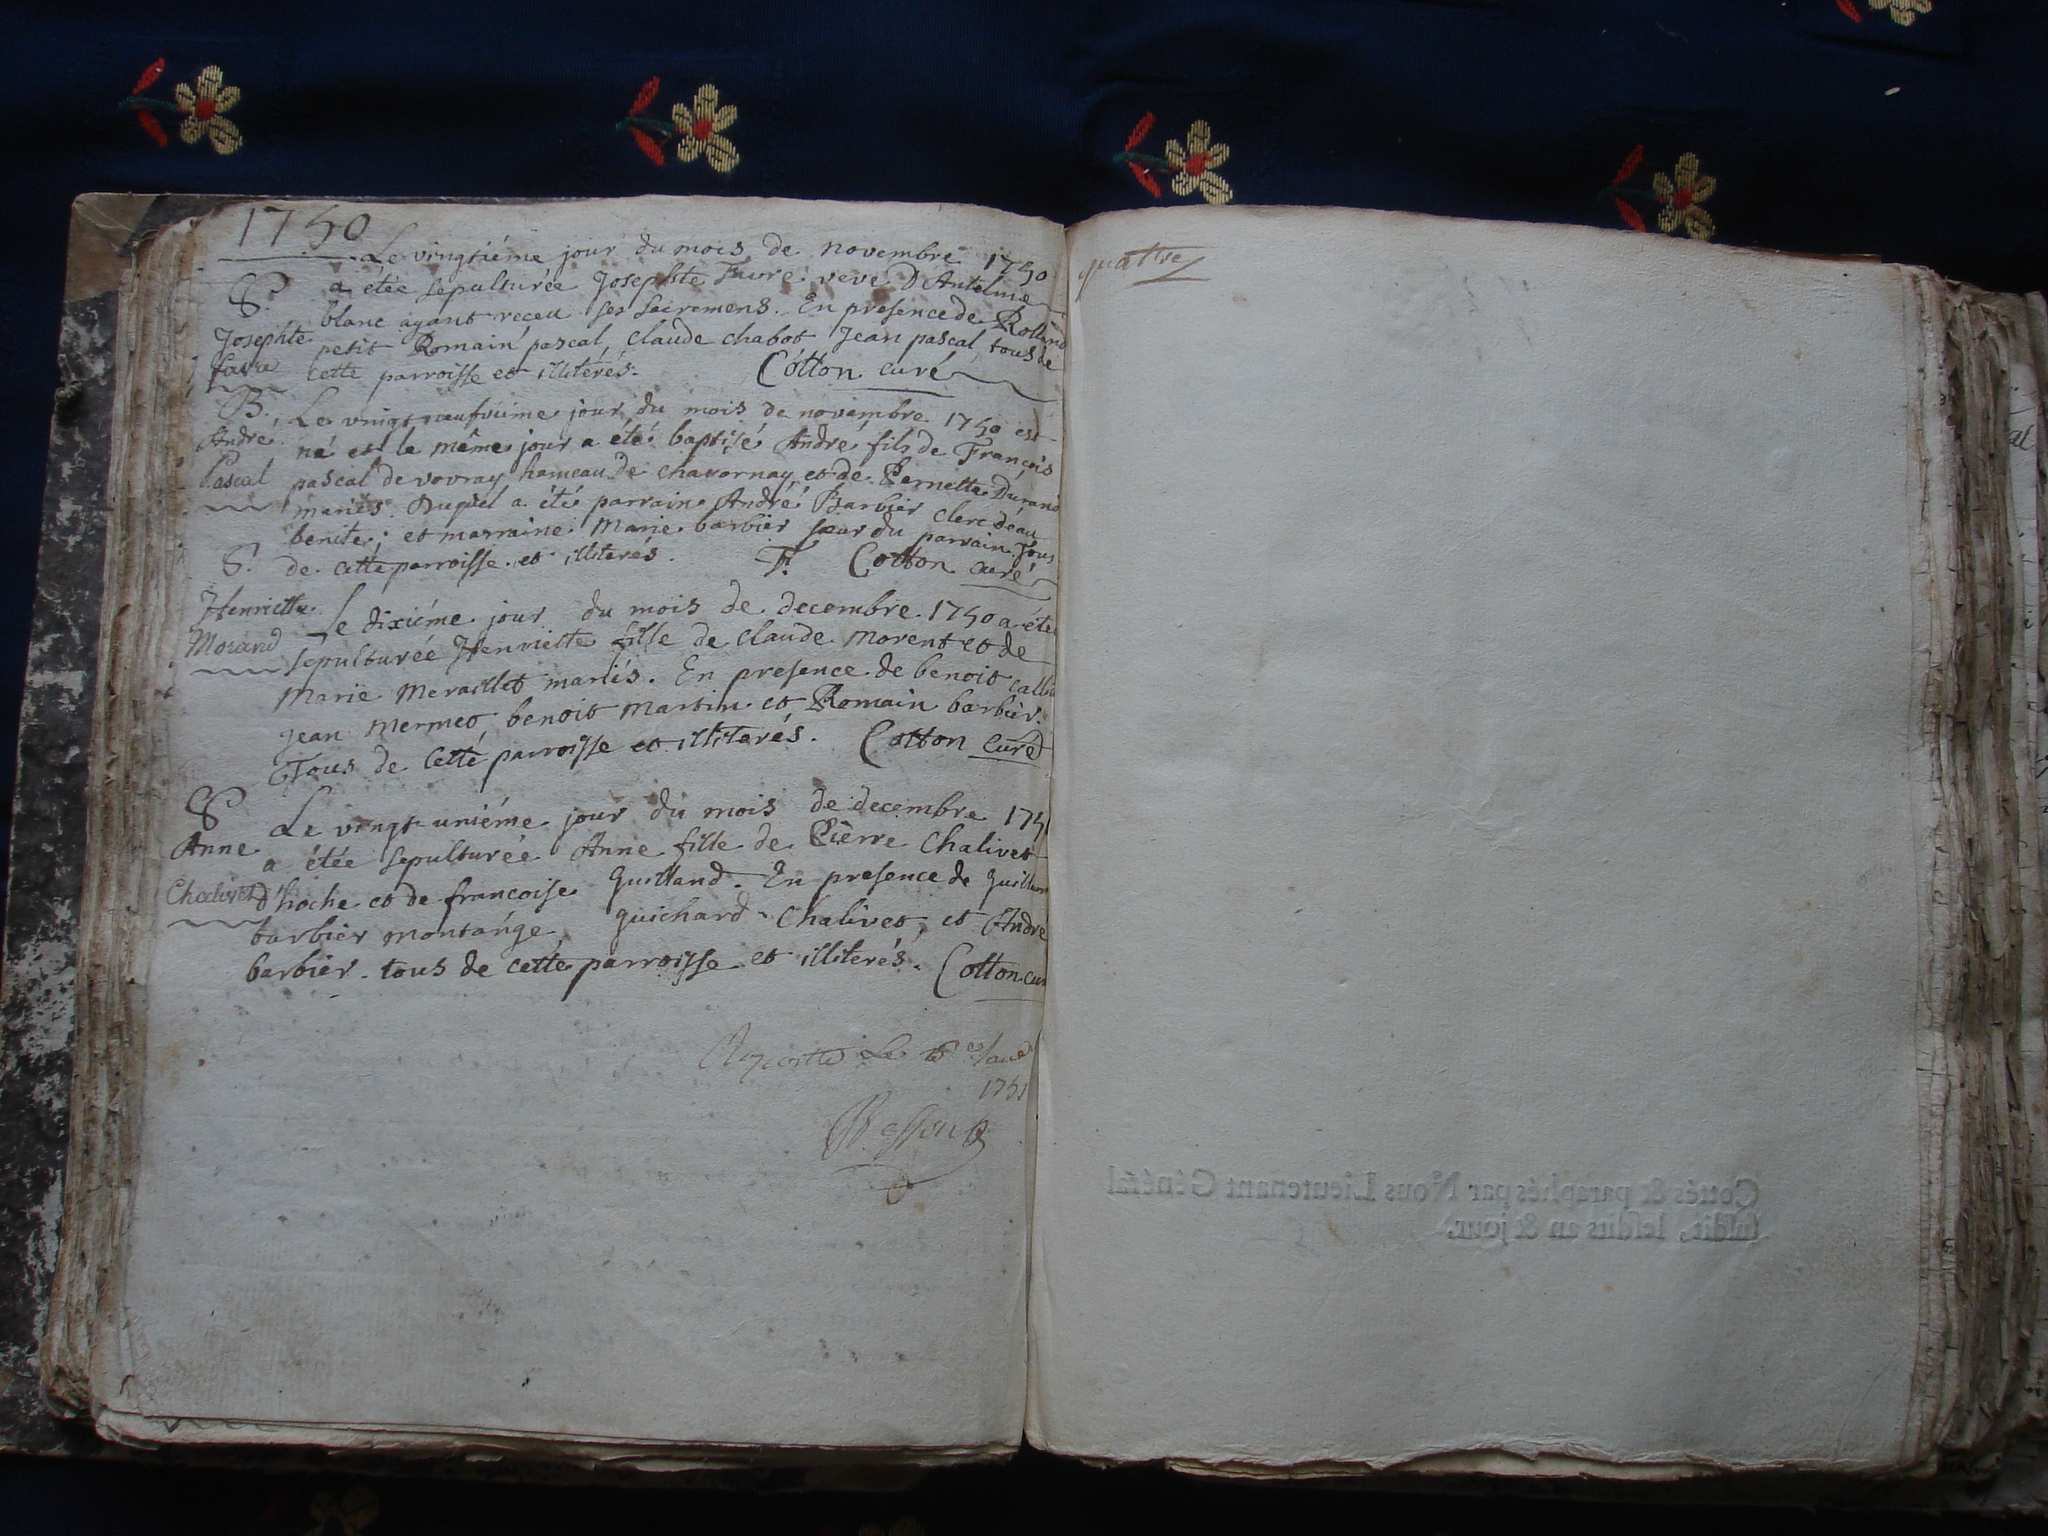 1750
Le vingtiéme jour du mois de novembre 1750
S. a étée sepulturée Josephte Favre veve D'Antelme
Josephte blanc ayant receu ses sacremens. En presence de Rolland
favre petit Romain pascal, Claude chabot Jean pascal, tous de
cette parroisse et illiterés. Cotton curé
B. Le vingt neufviéme jour du mois de novembre 1750 est
André né et le même jour a été baptisé André fils de François
Pascal pascal de vovray hameau de chavornay et de Pernette Durand
mariés. Duquel a été parrain André Barbier clerc d'eau
benite; et marraine Marie barbier sœur du parrain. Tous
S. de cette parroisse et illiterés. F. Cotton curé
Henriette Le dixiéme jour du mois de decembre 1750 a été
Morand sepulturée Henriette fille de Claude Morent et de
Marie Meraillet mariés. En presence de benoit
Jean Mermet benoit Martin et Romain barbier.
Tous de cette parroisse et illiterés. Cotton curé
S Le vingt uniéme jour du mois de decembre 175
Anne a étée sepulturée Anne fille de Pierre Chalivet
Chalivet d'hoche et de francoise Guilland. En presence de Guillaum
barbier montánge, guichard Chalivet, et André
barbier. tous de cette parroisse et illiterés. Cotton cur
Le
1751
quatre
Cottés & paraphés par Nous Lieutenant Général
susdit, lesdits an & jour.